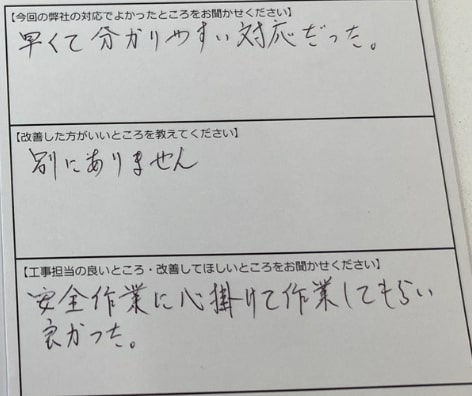 【今回の弊社の対応でよかったところをお聞かせください】
早くて分かりやすい対応だった。
【改善した方がいいところを教えてください】
別にありません
【工事担当の良いところ・改善してほしいところをお聞かせください】
安全作業に心掛けて作業してもらい
良かった。